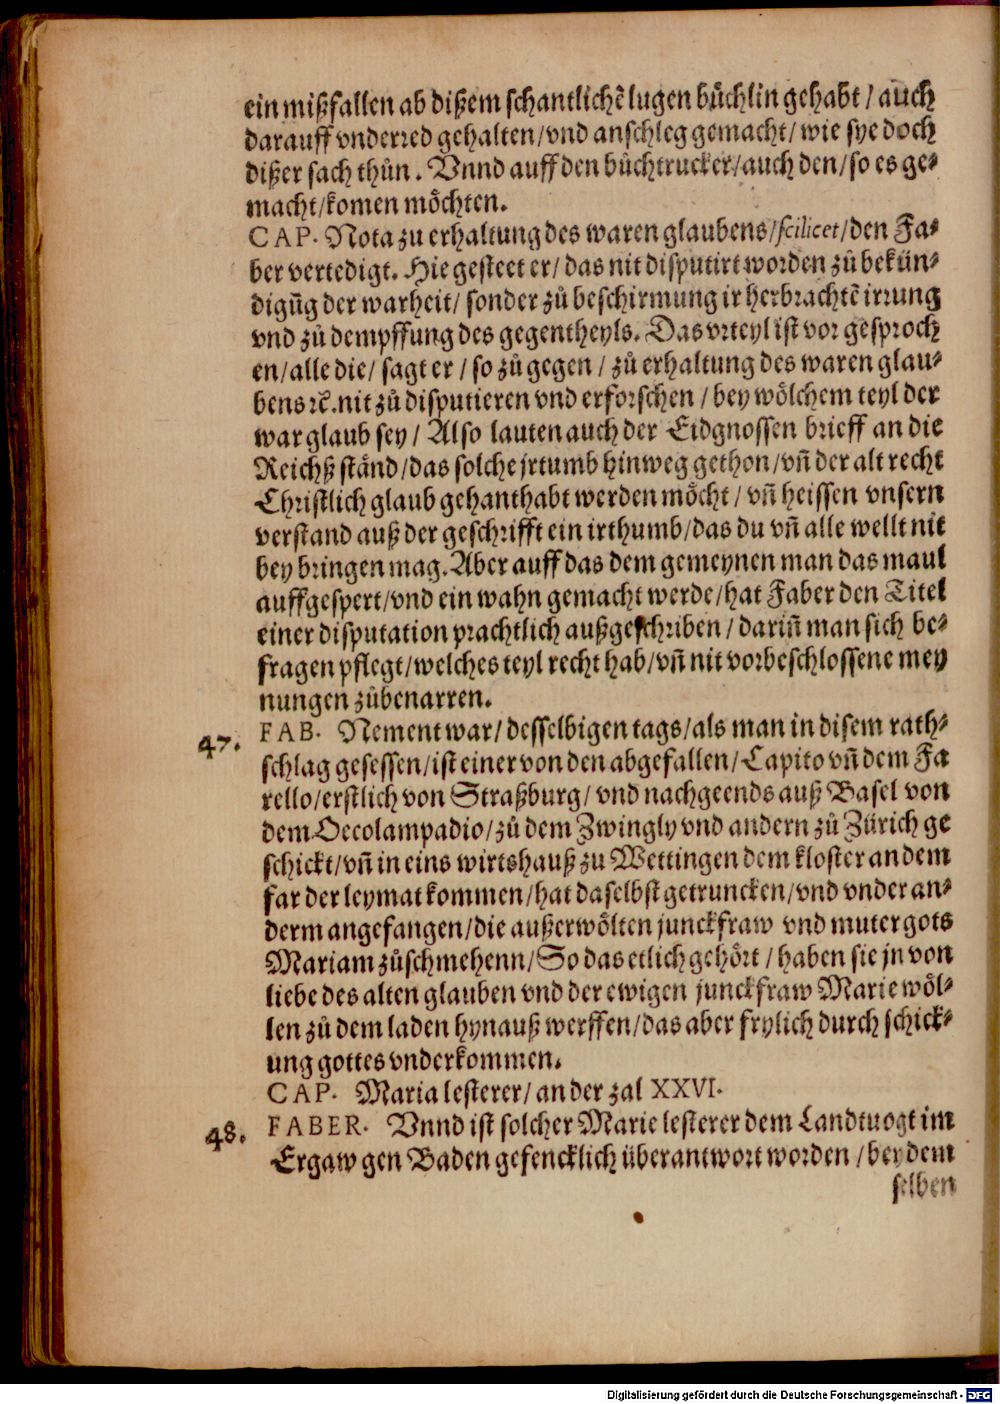 ein mißfallen ab dißem schantlichē lugen bůchlin gehabt / auch
darauff vnderred gehalten/vnd anschleg gemacht/ wie sye doch
dißer sach thůn. Vnnd auff den bůchtrucker/auch den/so es ge-
macht/komen möchten.
CAP. Nota zu erhaltung des waren glaubens/scilicet/den Fa-
ber vertedigt. Hie gesteet er/ das nit disputirt worden zů bekün-
digūg der warheit/ sonder zů beschirmung ir herbrachtē irrung
vnd zů dempffung des gegentheyls. Das vrteyl ist vor gesproch
en/alle die/ sagt er / so zů gegen / zů erhaltung des waren glau-
bens ꝛc̄. nit zů disputieren vnd erforschen / bey wölchem teyl der
war glaub sey / Also lauten auch der Eidgnossen brieff an die
Reichß stånd/das solche jrtumb hinweg gethon/vn̄ der alt recht
Christlich glaub gehanthabt werden möcht/ vn̄ heissen vnsern
verstand auß der geschrifft ein irthumb/das du vn̄ alle wellt nit
bey bringen mag. Aber auff das dem gemeynen man das maul
auffgespert/vnd ein wahn gemacht werde/hat Faber den Titel
einer disputation prachtlich außgeschriben / dariñ man sich be-
fragen pflegt/welches teyl recht hab/vn̄ nit vorbeschlossene mey
nungen zůbenarren.
47. FAB. Nement war/ desselbigen tags/als man in disem rath-
schlag gesessen/ist einer von den abgefallen/Capito vn̄ dem Fa
rello/erstlich von Straßburg/ vnd nachgeends auß Basel von
dem Oecolampadio/zů dem Zwingly vnd andern zů Zürich ge
schickt/vn̄ in eins wirtshauß zu Wettingen dem kloster an dem
far der leymat kommen/hat daselbst getruncken/vnd vnder an-
derm angefangen/die außerwölten junckfraw vnd muter gots
Mariam zůschmehenn/So das etlich gehört / haben sie jn von
liebe des alten glauben vnd der ewigen junckfraw Marie wöl-
len zů dem laden hynauß werffen/das aber frylich durch schick-
ung gottes vnderkommen.
CAP. Maria lesterer/ an der zal XXVI.
48. FABER. Vnnd ist solcher Marie lesterer dem Landtuogt im
Ergaw gen Baden gefencklich überantwort worden /bey dem
selben
Digitalisierung gefördert durch die Deutsche Forschungsgemeinschaft - DFG